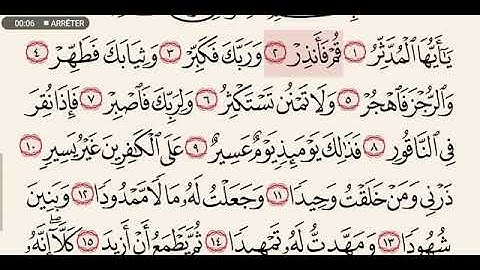 00:06 ■ ARRÊTER
يَٰٓأَيُّهَا ٱلْمُدَّثِّرُ ١ قُمْ فَأَنذِرْ ٢ وَرَبَّكَ فَكَبِّرْ ٣ وَثِيَابَكَ فَطَهِّرْ ٤
وَٱلرُّجْزَ فَٱهْجُرْ ٥ وَلَا تَمْنُن تَسْتَكْثِرُ ٦ وَلِرَبِّكَ فَٱصْبِرْ ٧ فَإِذَا نُقِرَ
فِى ٱلنَّاقُورِ ٨ فَذَٰلِكَ يَوْمَئِذٍ يَوْمٌ عَسِيرٌ ٩ عَلَى ٱلْكَٰفِرِينَ غَيْرُ يَسِيرٍ ١٠
ذَرْنِى وَمَنْ خَلَقْتُ وَحِيدًا ١١ وَجَعَلْتُ لَهُۥ مَالًا مَّمْدُودًا ١٢ وَبَنِينَ
شُهُودًا ١٣ وَمَهَّدتُّ لَهُۥ تَمْهِيدًا ١٤ ثُمَّ يَطْمَعُ أَنْ أَزِيدَ ١٥ كَلَّآ إِنَّهُۥ